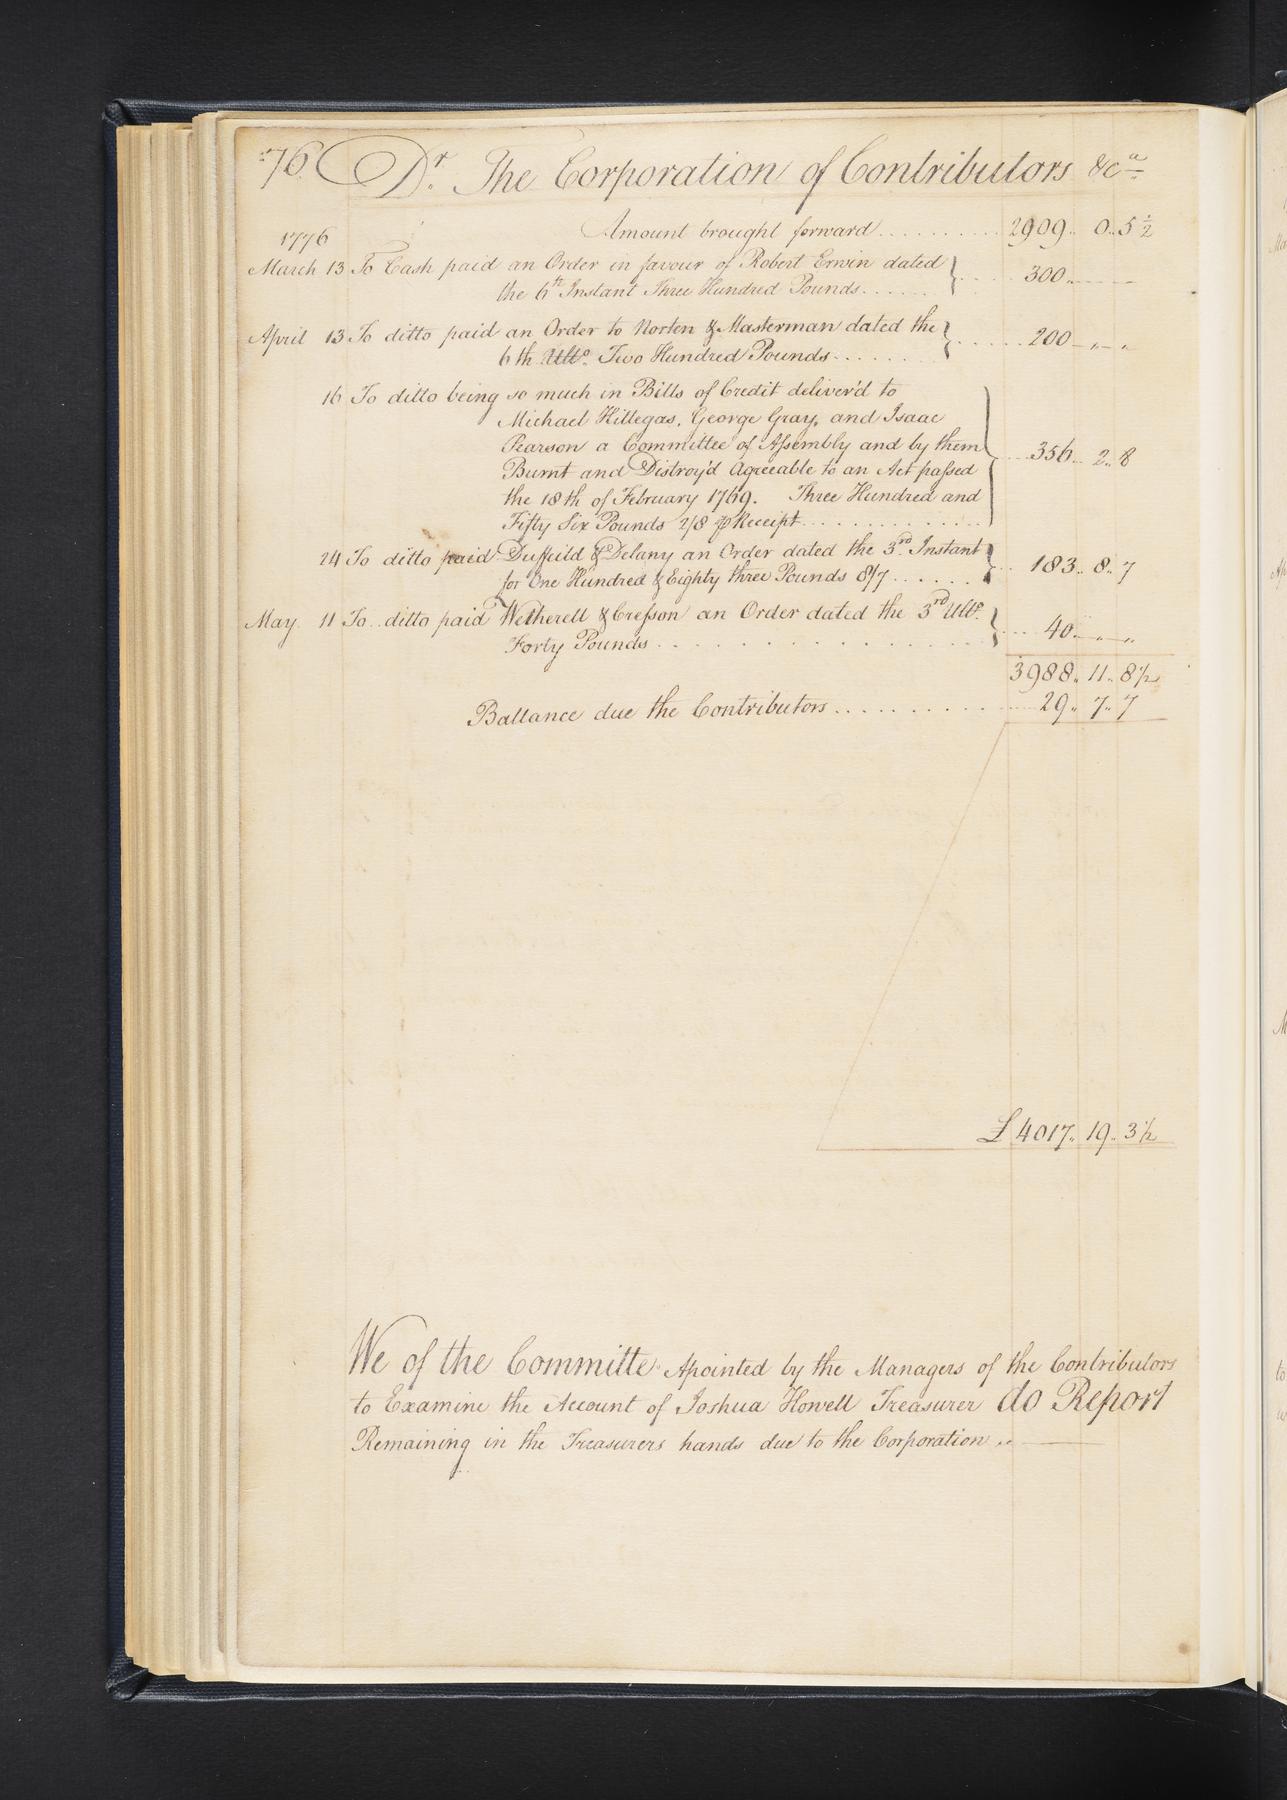 76 Dr. The Corporation of Contributors &ca
1776 Amount brought forward .......... 2909.. 0.. 5 1/2
March 13 To Cash paid an Order in favour of Robert Erwin dated
the 6th Instant Three Hundred Pounds ...... 300..
April 13 To ditto paid an Order to Norten & Masterman dated the
6th Ulto. Two Hundred Pounds ....... 200 „ „
16 To ditto being so much in Bills of Credit deliver'd to
Michael Hillegas, George Gray, and Isaac
Pearson a Committee of Assembly and by them
Burnt and Distroy'd Agreeable to an Act passed
the 18th of February 1769. Three Hundred and
Fifty Six Pounds 2/8 ⅌ Receipt .............. 356.. 2.. 8
24 To ditto paid Duffield & Delany an Order dated the 3rd. Instant
for One Hundred & Eighty three Pounds 8/7 ...... 183.. 8.. 7
May 11 To ditto paid Wetherell & Cresson an Order dated the 3rd Ulto.
Forty Pounds ............. 40 „ „
3988.. 11.. 8 1/2
Ballance due the Contributors .......... 29.. 7.. 7
£ 4017.. 19.. 3 1/2
We of the Committe Apointed by the Managers of the Contributors
to Examine the Account of Joshua Howell Treasurer do Report
Remaining in the Treasurers hands due to the Corporation ..